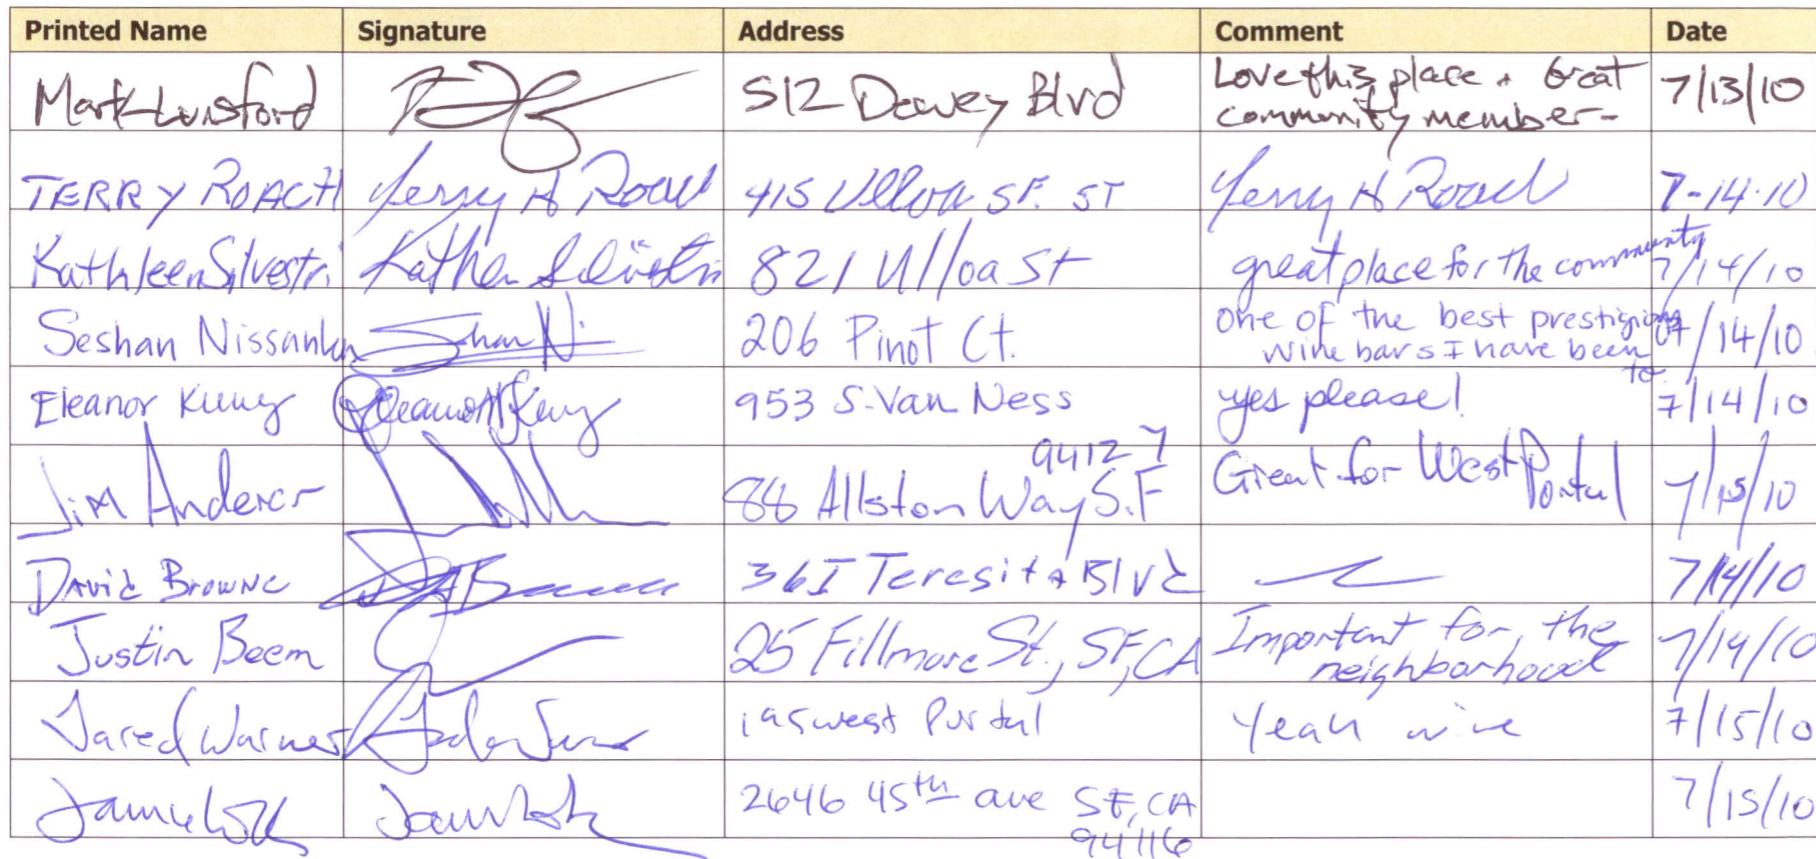 Printed Name Signature Address Comment Date
Mark Lunsford 512 Dewey Blvd Love this place. Great community member- 7/13/10
TERRY ROACH Terry H Roach 415 Ulloa SF. ST Terry H Roach 7-14-10
Kathleen Silvestri Kathleen Silvestri 821 Ulloa St great place for the community 7/14/10
Seshan Nissanka 206 Pinot Ct. One of the best prestigious wine bars I have been to. 07/14/10
Eleanor Kung Eleanor Kung 953 S. Van Ness yes please! 7/14/10
Jim Anderer 88 Allston Way S.F 94127 Great for West Portal 7/15/10
David Browne 361 Teresita Blvd 7/14/10
Justin Beem 25 Fillmore St., SF, CA Important for the neighborhood 7/14/10
Jared Warner west Portal Yeah wine 7/15/10
Jamie 2646 45th ave SF, CA 94116 7/15/10